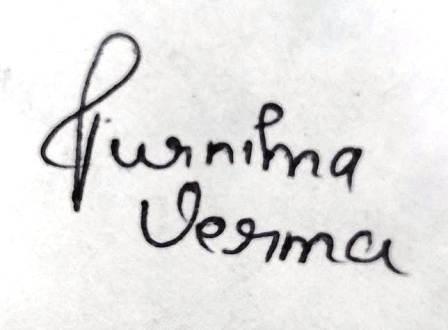 Purnima
Verma